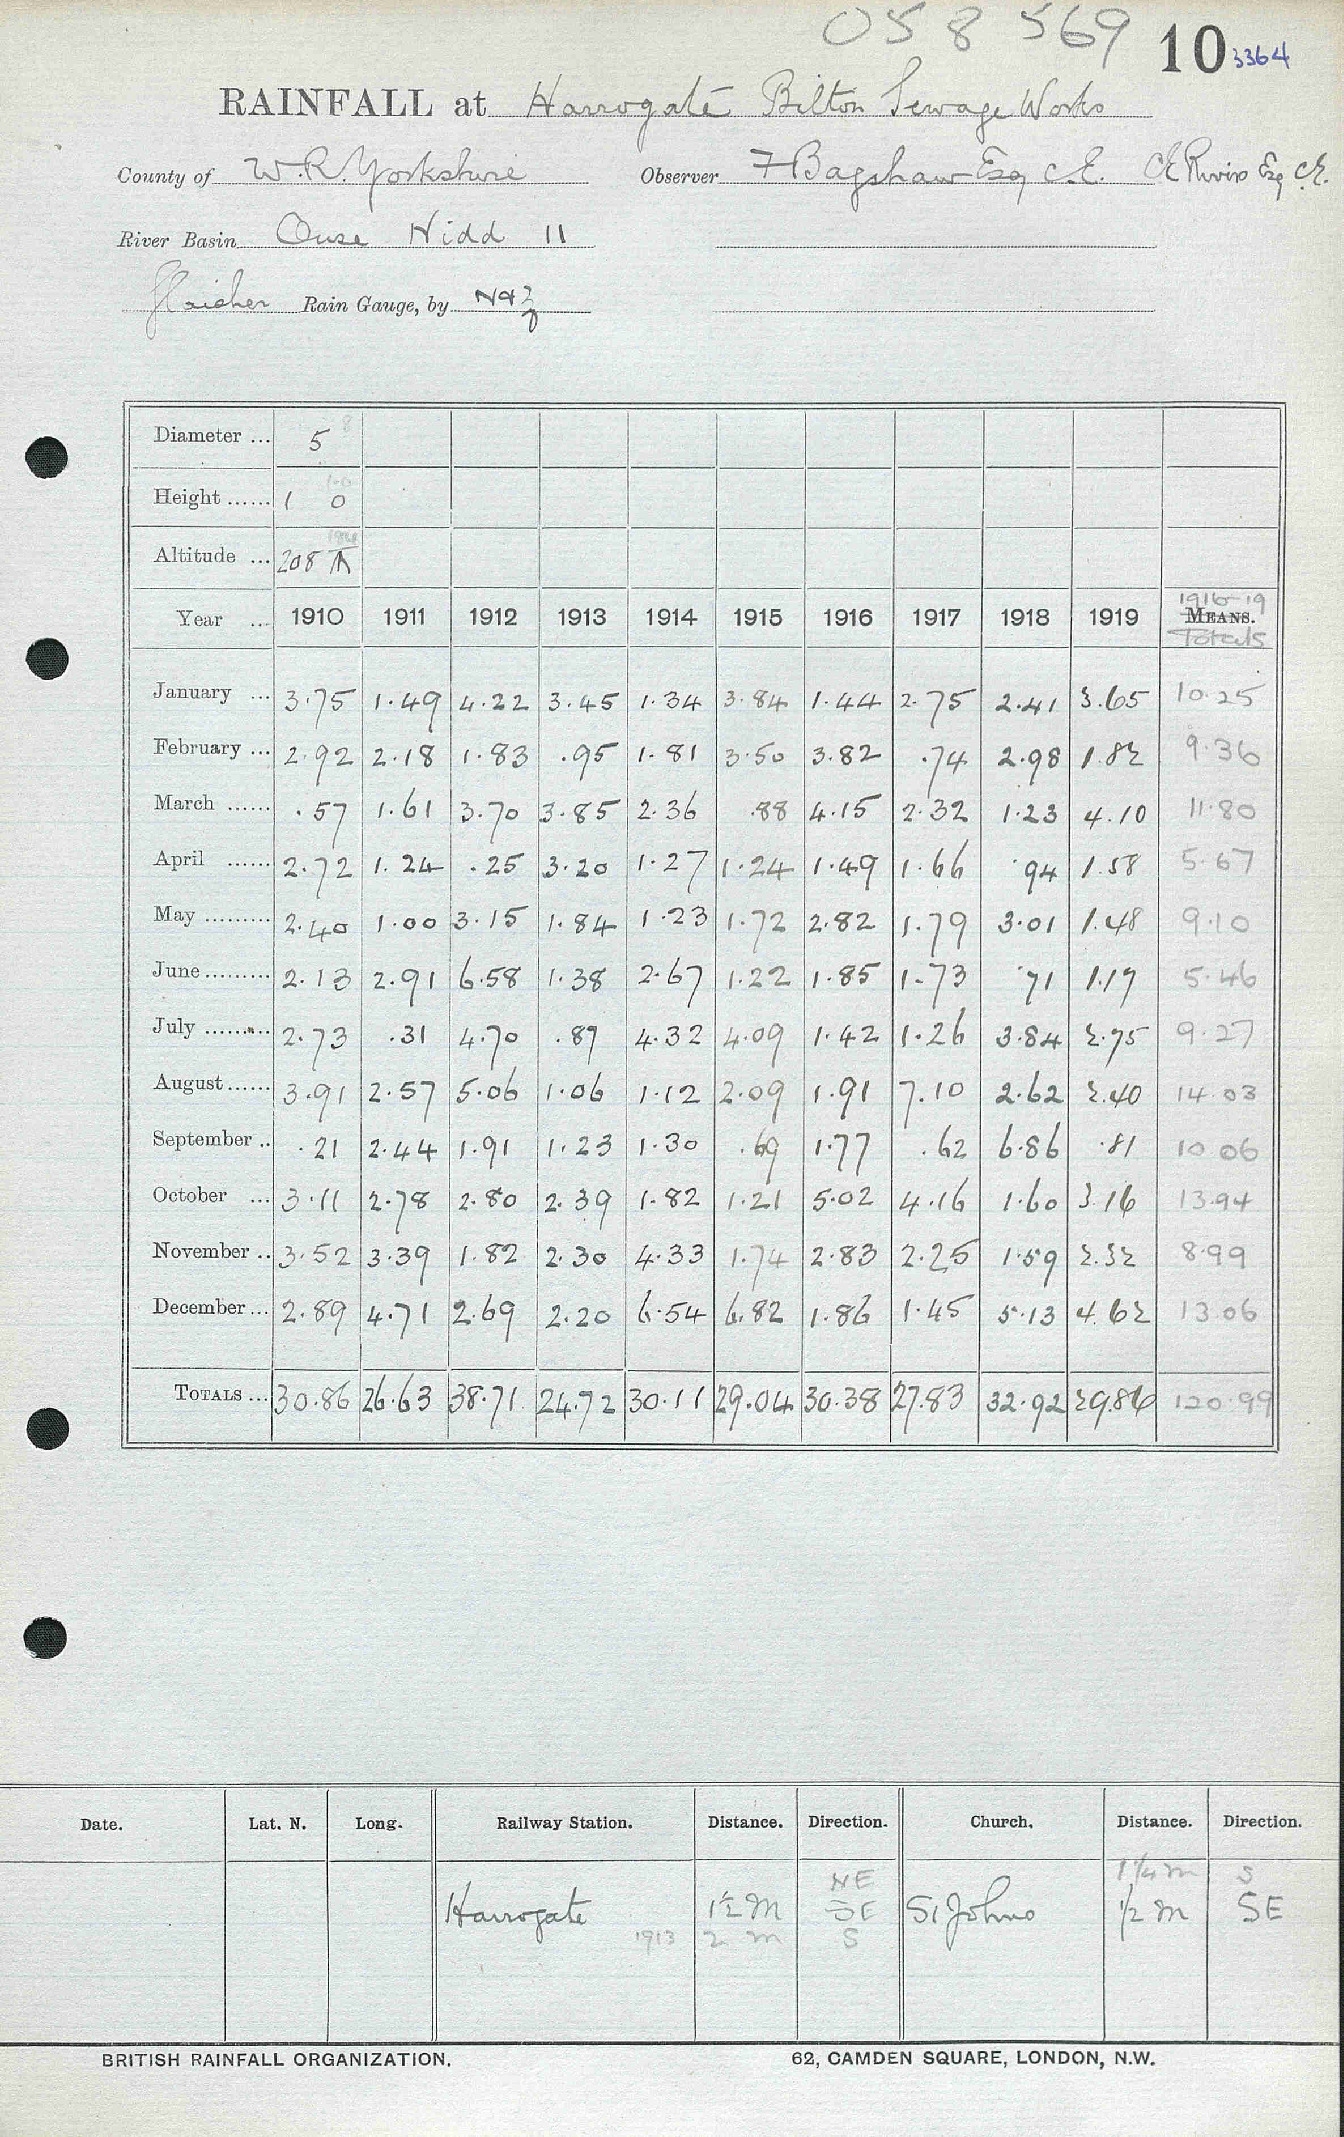 058 569 10 3364
RAINFALL at Harrogate Bilton Sewage Works
County of W.R. Yorkshire Observer F Bagshaw Esq C.E. Esq C.E.
River Basin Ouse Nidd 11
Rain Gauge, by N & Z
Diameter ... 5 8
Height ...... 1 0
Altitude ... 208
Year ... 1910 1911 1912 1913 1914 1915 1916 1917 1918 1919 1916-19 MEANS. Totals
January ... 3.75 1.49 4.22 3.45 1.34 3.84 1.44 2.75 2.41 3.65 10.25
February ... 2.92 2.18 1.83 .95 1.81 3.50 3.82 .74 2.98 1.82 9.36
March ...... .57 1.61 3.70 3.85 2.36 .88 4.15 2.32 1.23 4.10 11.80
April ...... 2.72 1.24 .25 3.20 1.27 1.24 1.49 1.66 .94 1.58 5.67
May ......... 2.40 1.00 3.15 1.84 1.23 1.72 2.82 1.79 3.01 1.48 9.10
June ......... 2.13 2.91 6.58 1.38 2.67 1.22 1.85 1.73 .71 1.17 5.46
July ......... 2.73 .31 4.70 .87 4.32 4.09 1.42 1.26 3.84 2.75 9.27
August ...... 3.91 2.57 5.06 1.06 1.12 2.09 1.91 7.10 2.62 2.40 14.03
September .. .21 2.44 1.91 1.23 1.30 .69 1.77 .62 6.86 .81 10 06
October ... 3.11 2.78 2.80 2.39 1.82 1.21 5.02 4.16 1.60 3.16 13.94
November .. 3.52 3.39 1.82 2.30 4.33 1.74 2.83 2.25 1.59 2.32 8.99
December ... 2.89 4.71 2.69 2.20 6.54 6.82 1.86 1.45 5.13 4.62 13.06
TOTALS ... 30.86 26.63 38.71 24.72 30.11 29.04 30.38 27.83 32.92 29.86 120.99
Date. Lat. N. Long. Railway Station. Distance. Direction. Church. Distance. Direction.
NE 1 1/4 m S
Harrogate 1½ m SE St Johns ½ m SE
1913 2 m S
BRITISH RAINFALL ORGANIZATION. 62, CAMDEN SQUARE, LONDON, N.W.